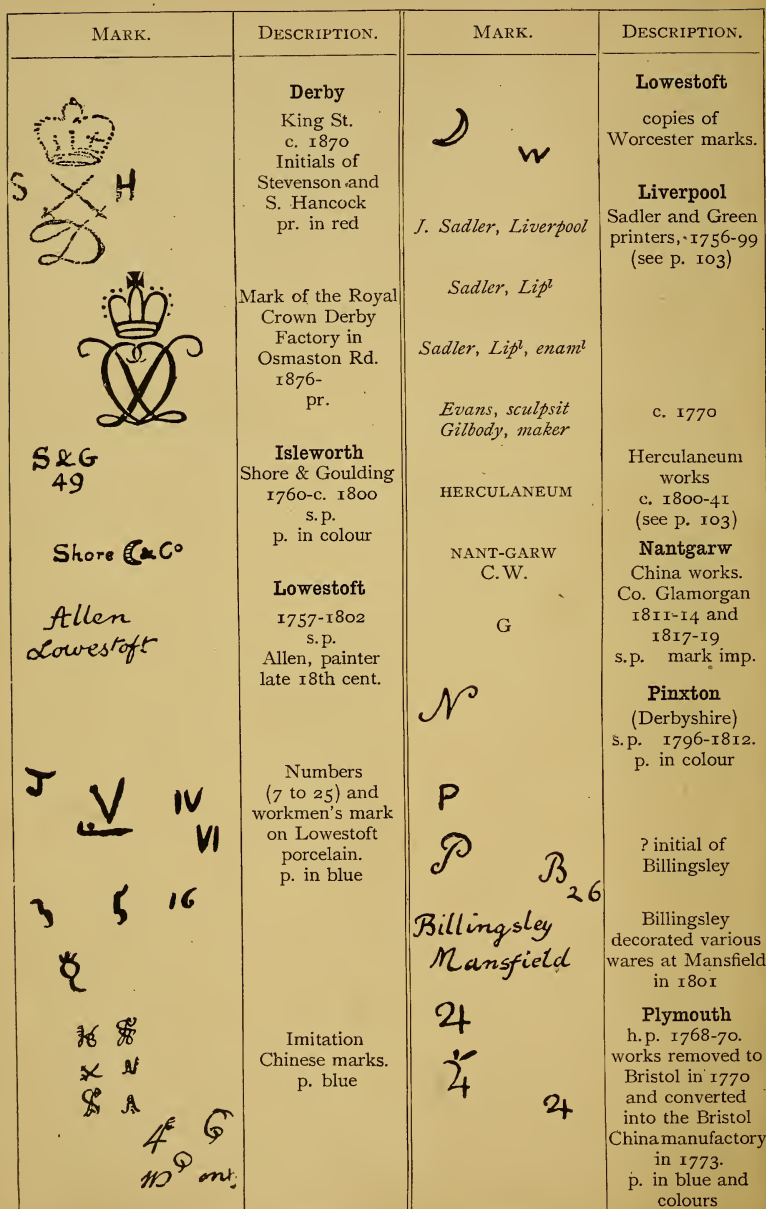 MARK.
DESCRIPTION.
Derby
King St.
c. 1870
Initials of
Stevenson and
S. Hancock
pr. in red
S H
D
Mark of the Royal
Crown Derby
Factory in
Osmaston Rd.
1876-
pr.
S & G
49
Isleworth
Shore & Goulding
1760-c. 1800
s.p.
p. in colour
Shore & Co
Allen
Lowestoft
Lowestoft
1757-1802
s.p.
Allen, painter
late 18th cent.
J V IV
VI
16
Numbers
(7 to 25) and
workmen's mark
on Lowestoft
porcelain.
p. in blue
Imitation
Chinese marks.
p. blue
MARK.
DESCRIPTION.
W
Lowestoft
copies of
Worcester marks.
J. Sadler, Liverpool
Liverpool
Sadler and Green
printers, 1756-99
(see p. 103)
Sadler, Lipˡ
Sadler, Lipˡ, enamˡ
Evans, sculpsit
Gilbody, maker
c. 1770
HERCULANEUM
Herculaneum
works
c. 1800-41
(see p. 103)
NANT-GARW
C.W.
G
Nantgarw
China works.
Co. Glamorgan
1811-14 and
1817-19
s.p. mark imp.
N
Pinxton
(Derbyshire)
s.p. 1796-1812.
p. in colour
P
P B
26
? initial of
Billingsley
Billingsley
Mansfield
Billingsley
decorated various
wares at Mansfield
in 1801
Plymouth
h.p. 1768-70.
works removed to
Bristol in 1770
and converted
into the Bristol
China manufactory
in 1773.
p. in blue and
colours